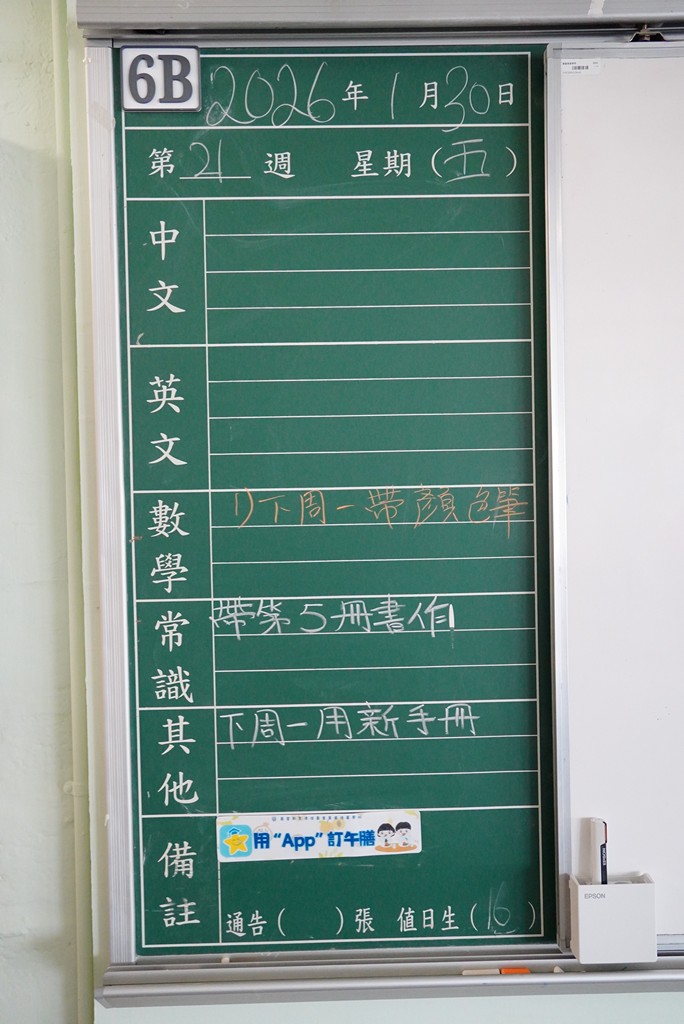 6B
2026年1月30日
第21週 星期(五)
中文
英文
數學
1)下周一帶顏色筆
常識
帶第5冊書作
其他
下周一用新手冊
備註
用“App”訂午膳
通告( )張 值日生(16)
EPSON